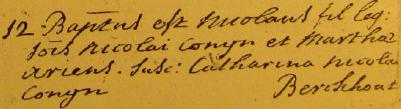 12 Baptus est Nicolaus fil leg:
Joīs Nicolai Conyn et Martha
Ariens. Susc: Catharina Nicolai
Conyn Berckhout